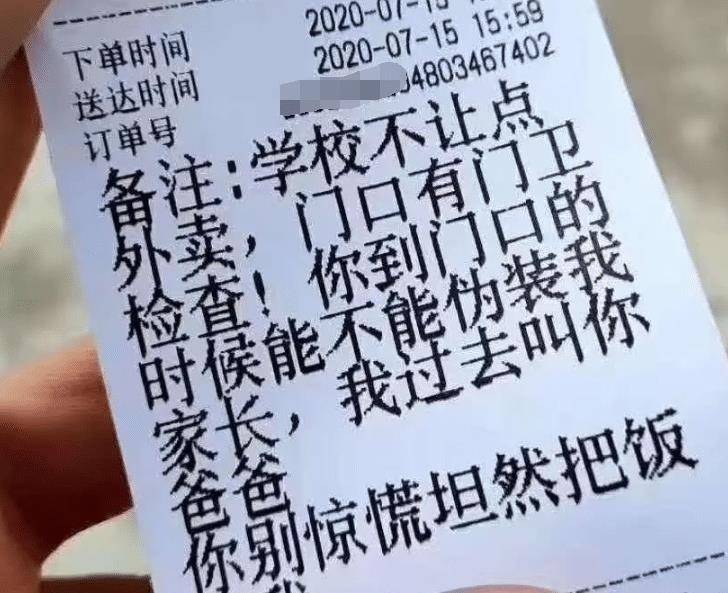 下单时间 2020-07-15
送达时间 2020-07-15 15:59
订单号 04803467402
备注:学校不让点
外卖，门口有门卫
检查！你到门口的
时候能不能伪装我
家长，我过去叫你
爸爸
你别惊慌坦然把饭